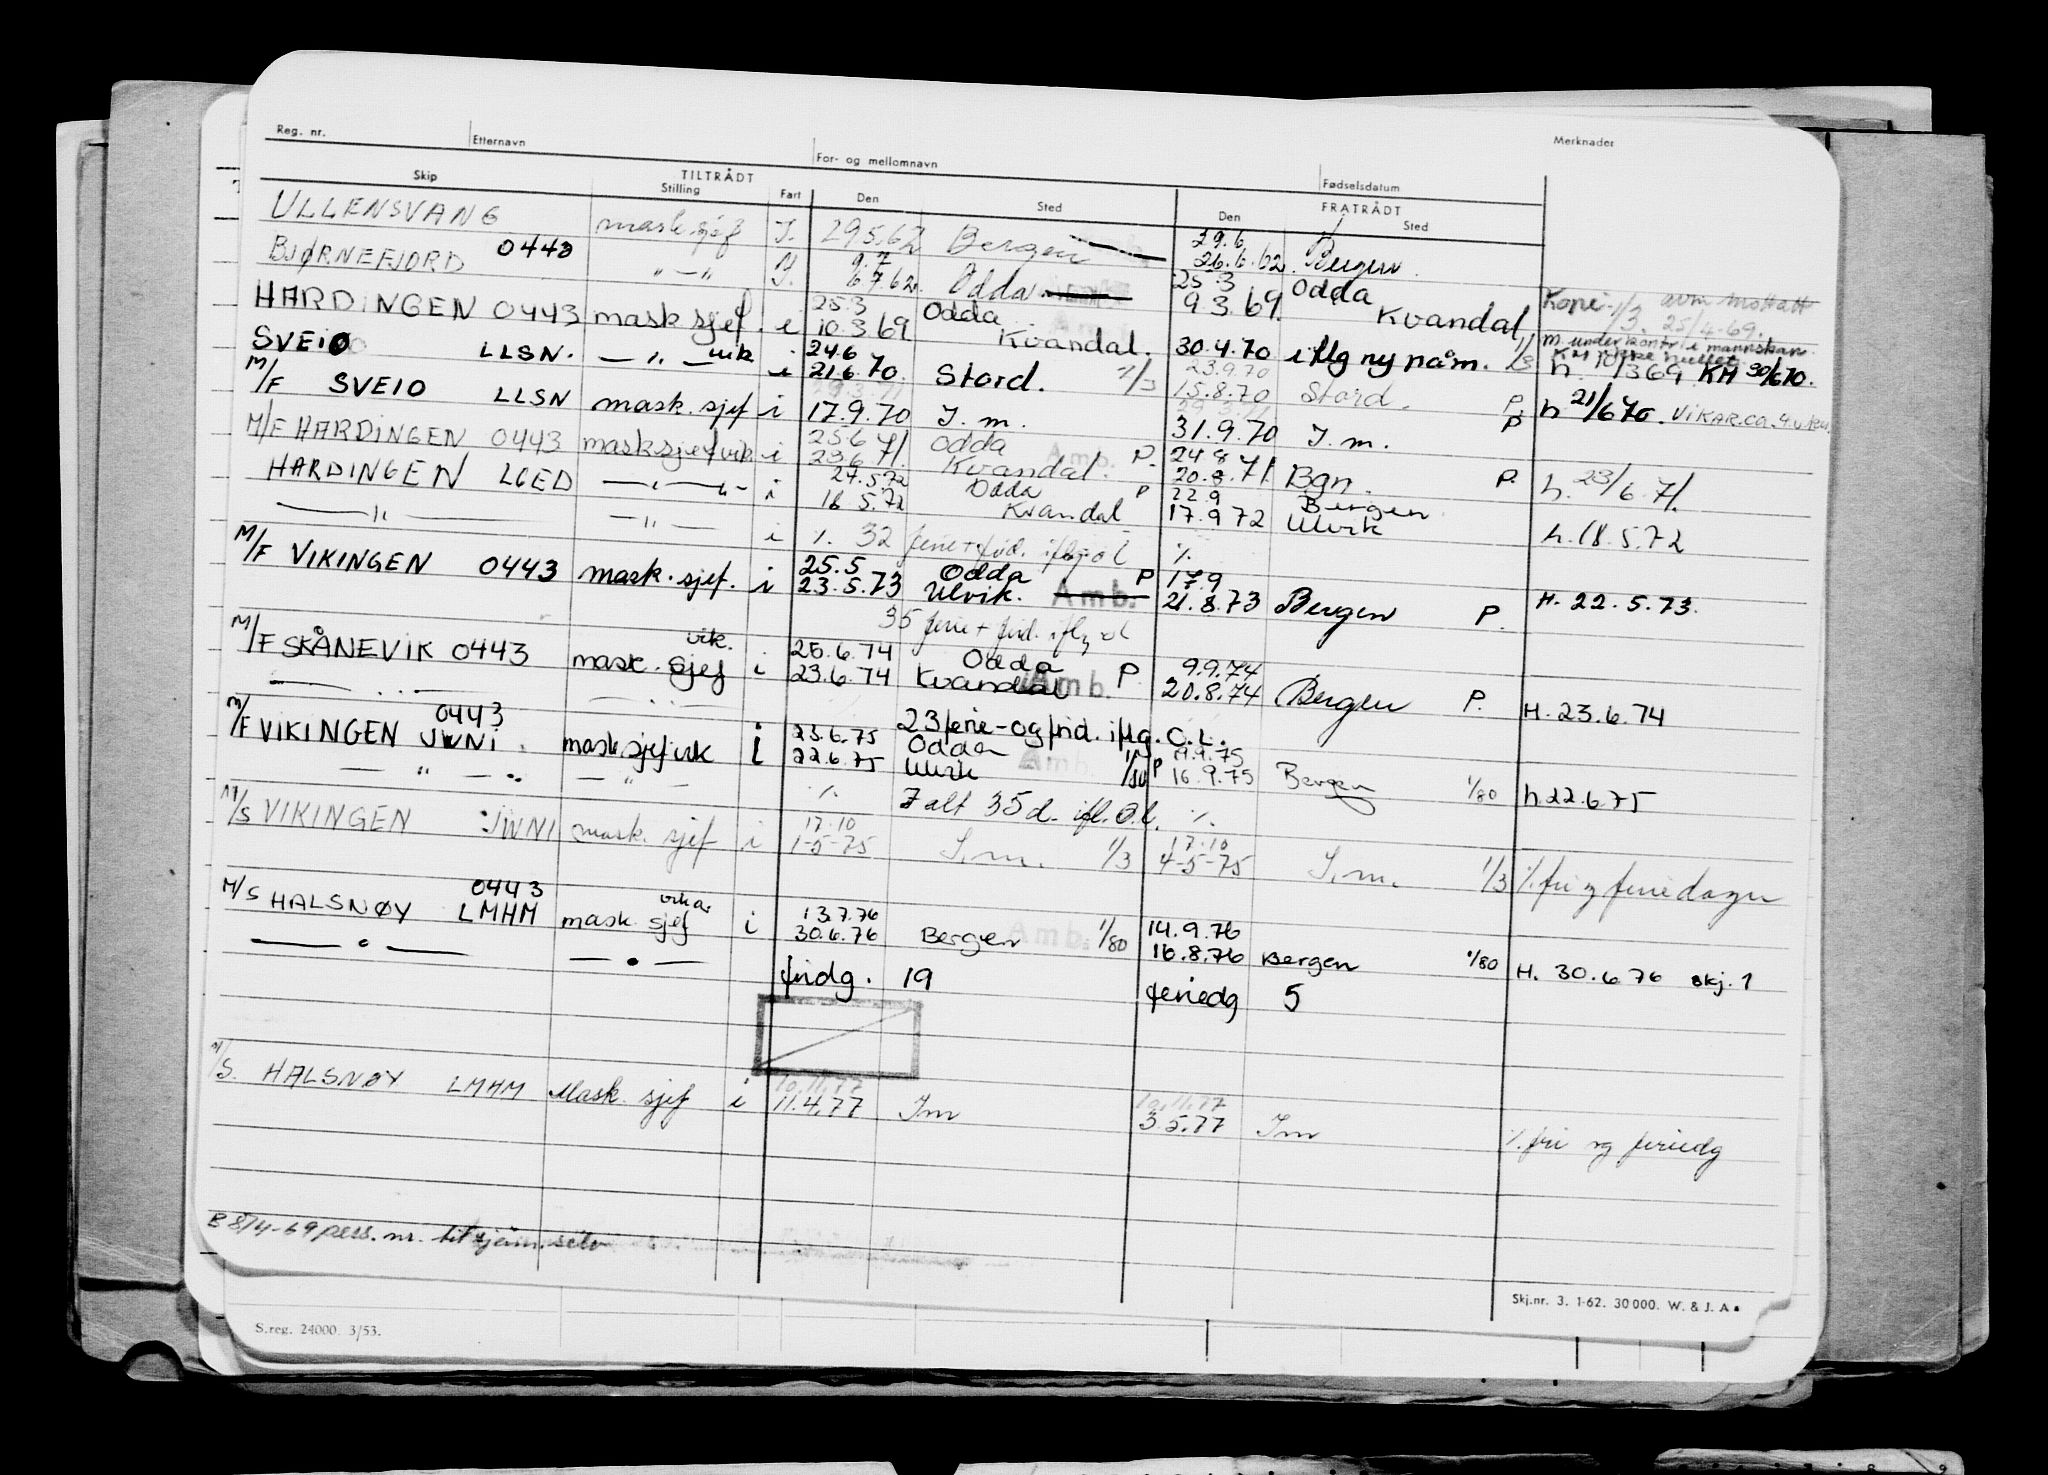 Reg. nr. Etternavn For- og mellomnavn Fødselsdatum Merknader
TILTRÅDT FRATRÅDT
Skip Stilling Fart Den Sted Den Sted
ULLENSVANG mask.sjef I. 29.5.62 Bergen 29.6 26.6.62 Bergen
BJØRNEFJORD 0443 " — " I. 9.7 6.7.62 Odda 25.3 Odda
HARDINGEN 0443 mask sjef. i 25.3 10.3.69 Odda Kvandal. 9.3.69. Kvandal
Kopi 1/3. 25/4-69.
SVEIO LLSN. — " — vik i 24.6 21.6.70. Stord. 1/3 30.4.70 iflg ny nåm. 1/3 h. 10/3 69 KH 30/6 70.
M/F SVEIO LLSN mask. sjef i 17.9.70 I.m. 23.9.70 15.8.70 Stord. P. h 21/6 70. VIKAR.ca. 9 uker
31.9.70 I.m. P
M/F HARDINGEN 0443 mask sjef vik i 25.6 23.6 71. Odda Kvandal. Amb. P. 24.8 20.8.71. Bgn. P. h. 23/6.71.
HARDINGEN LGED — " — i 27.5.72 16 5.72 Odda Kvandal P 22.9 17.9 72 Bergen Ulvik h. 18.5.72
— " — — " — i 1. 32 ferie + frid. iflg. ol 1.
M/F VIKINGEN 0443 mask. sjef. i 25.5 23.5.73 Odda Ulvik. Amb. P 17.9 21.8.73 Bergen P. H. 22.5.73.
35 ferie + frid. iflg ol
M/F SKÅNEVIK 0443 mask. sjef vik. i 26.6.74 23.6.74 Odda Kvandal Amb. P. 9.9.74 20.8.74 Bergen P. H. 23.6.74
23 ferie-og frid. iflg. O.L.
M/F VIKINGEN 0443 JWNI. mask sjef vik i 23.6.75 22.6.75 Odda Ulvik Amb. 1/80 P 19.9.75 16.9.75 Bergen 1/80 h 22.6.75
— " — — " — 1. I alt 35 d. ifl. O.l. 1.
M/S VIKINGEN JWNI mask. sjef i 17.10 1-5-75 I.m. 1/3 17.10 4-5-75 I.m. 1/3 1. fri og feriedager
M/S HALSNØY 0443 LMHM mask. sjef vikar i 13.7.76 30.6.76 Bergen Amb. 1/80 14.9.76 16.8.76 Bergen 1/80 H. 30.6.76 skj. 1
fridg. 19 feriedg 5
M/S. HALSNØY LMHM Mask. sjef i 10.11.77 11.4.77 Im 10.11.77 3.5.77 Im 1. fri og feriedg
B 874-69 pers. nr.
Skj.nr. 3. 1-62. 30000. W. & J. A.
S.reg. 24000. 3/53.